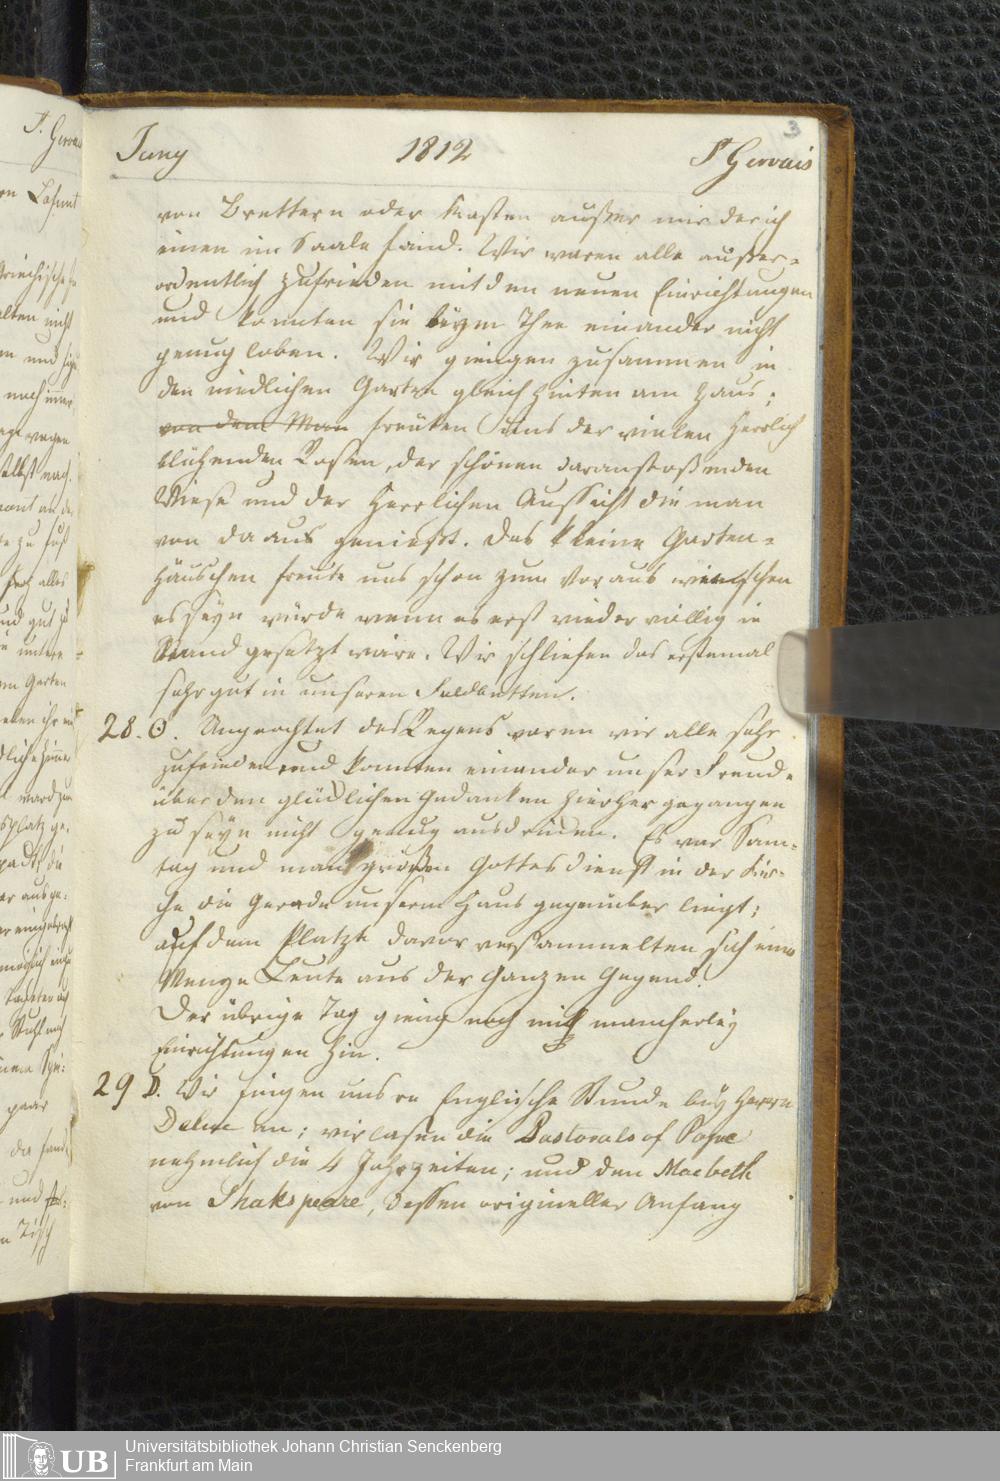 3
Juny 1812 St Gervais
von Brettern oder Kasten außer mir der ich
einen im Saale fand. Wir waren alle außer-
ordentlich zufrieden mit den neuen Einrichtungen
und konnten sie beym Thee einander nicht
genug loben. Wir giengen zusammen in
den niedlichen Garten gleich hinten am Haus;
von dem Man freuten uns der vielen herrlich
blühenden Rosen, der schönen daranstoßenden
Wiese und der herrlichen Aussicht die man
von da aus genießt. Das kleine Garten-
häuschen freute uns schon zum Voraus wie
es seyn würde wenn es erst wieder völlig in
Stand gesetzt wäre. Wir schliefen das erstemal
sehr gut in unseren Feldbetten.
28. ☉. Ungeachtet des Regens waren wir alle sehr
zufrieden und konnten einander unser Freude
über den glücklichen Gedanken hierher gegangen
zu seyn nicht genug ausdrücken. Es war Sonn-
tag und man großen Gottesdienst in der Kir-
che die Gerade unserm Haus gegenüber liegt;
auf dem Platze davor versammelten sich eine
Menge Leute aus der Ganzen Gegend.
Der übrige Tag gieng noch mit mancherley
Einrichtungen hin.
29 ☽. Wir fingen unsre Englische Stunde bey Herrn
an; wir lasen die Pastorals of Pope
nehmlich die 4 Jahrzeiten; und den Macbeth
von Shakspeare, dessen origineller Anfang
UB Universitätsbibliothek Johann Christian Senckenberg
Frankfurt am Main